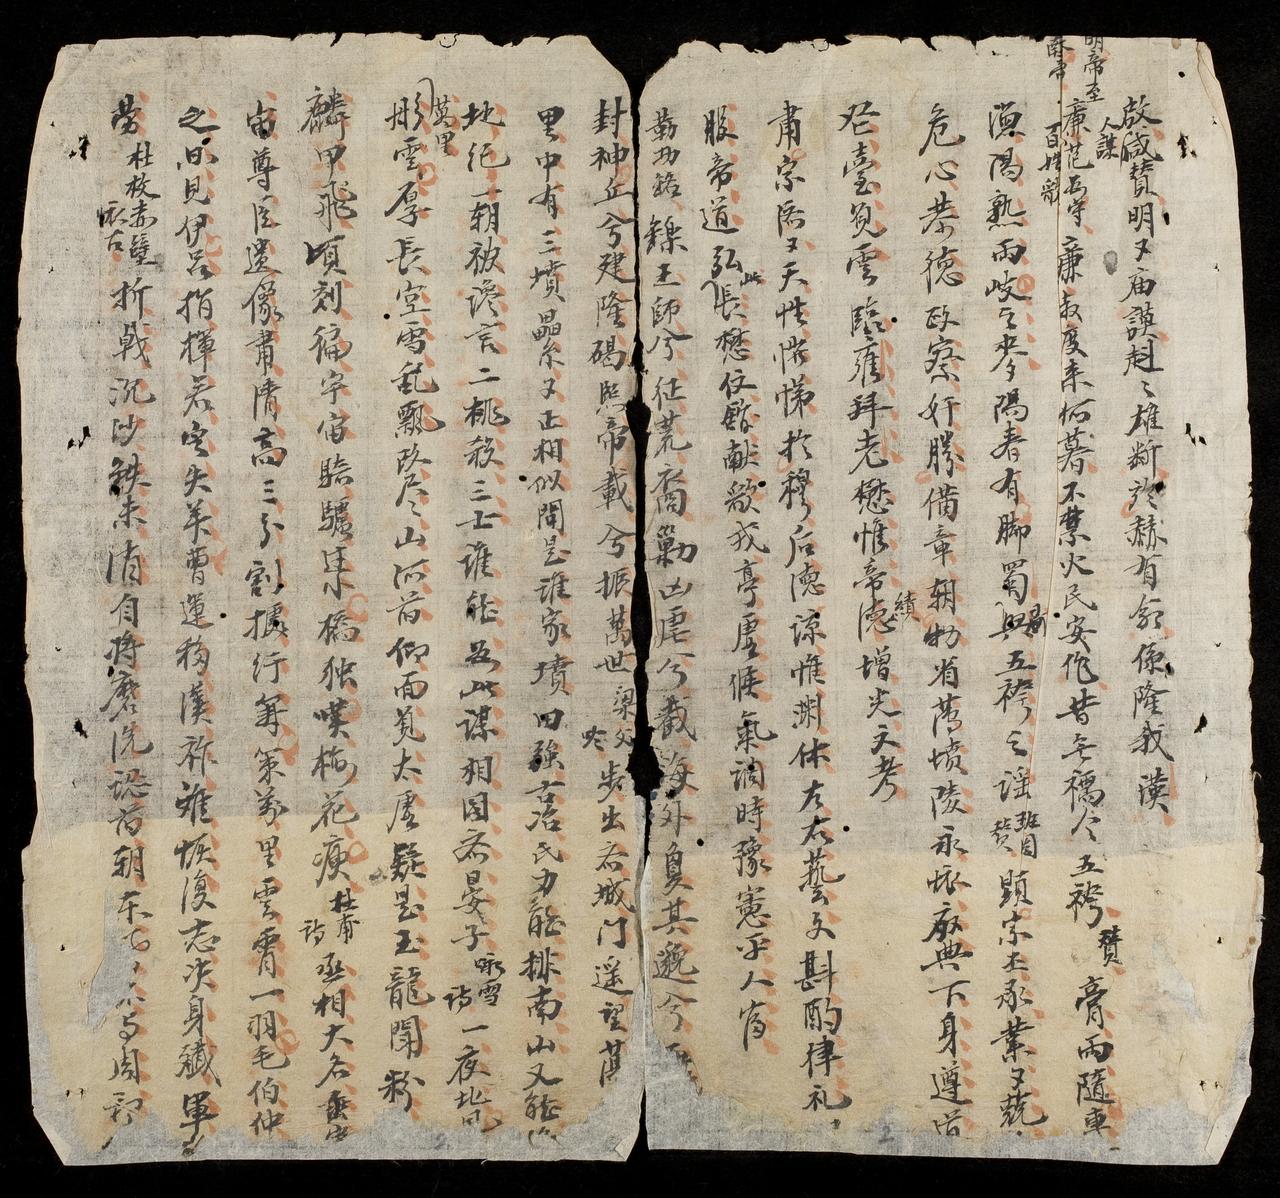 啟咸贊明又庙謨赳〻雄斷於赫有命係隆我漢
明帝至章帝
人謀百姓歌 廉范為守 廉叔度來何暮不禁火民安作昔無襦今五袴 賛 膏雨隨車
漁陽熟兩岐之麥陽春有脚蜀興五袴之謡 班固賛 顕宗丕承業又兢
危心恭德政察奸勝備章朝物省薄墳陵永怀廢典下身遵道
登臺覓雲臨雍拜老懋惟帝德績增光文考
肅宗濟又天性愷悌於穆后德諒惟淵体左右藝文斟酌律礼
服帝道弘此長懋儒館献歌我亭虛候氣調時豫憲平人富
勒功銘 鑠王師兮征荒裔剿凶虐兮截海外敻其邈兮
封神丘兮建隆碣熙帝載兮振萬世 梁父吟 步出齐城门遥望蕩
里中有三墳纍纍又正相似問是誰家墳田強古冶氏力能排南山又能
地紀一朝被讒言二桃殺三士誰能為此謀相國齐晏子 咏雪詩 一夜北風
萬里彤雲厚長空雪乱飄改尽山河旧仰面覓太虛疑是玉龍鬪粉
麟甲飛頃刻徧宇宙騎驢過小橋独嘆梅花瘦 杜甫詩 丞相大名垂宇
宙尊臣遺像肅清高三分割據行筭策萬里雲霄一羽毛伯仲
之间見伊呂指揮若定失萧曹運移漢祚难恢復志决身殲軍
劳 杜牧赤壁怀古 折戟沉沙鉄未消自将磨洗認前朝东